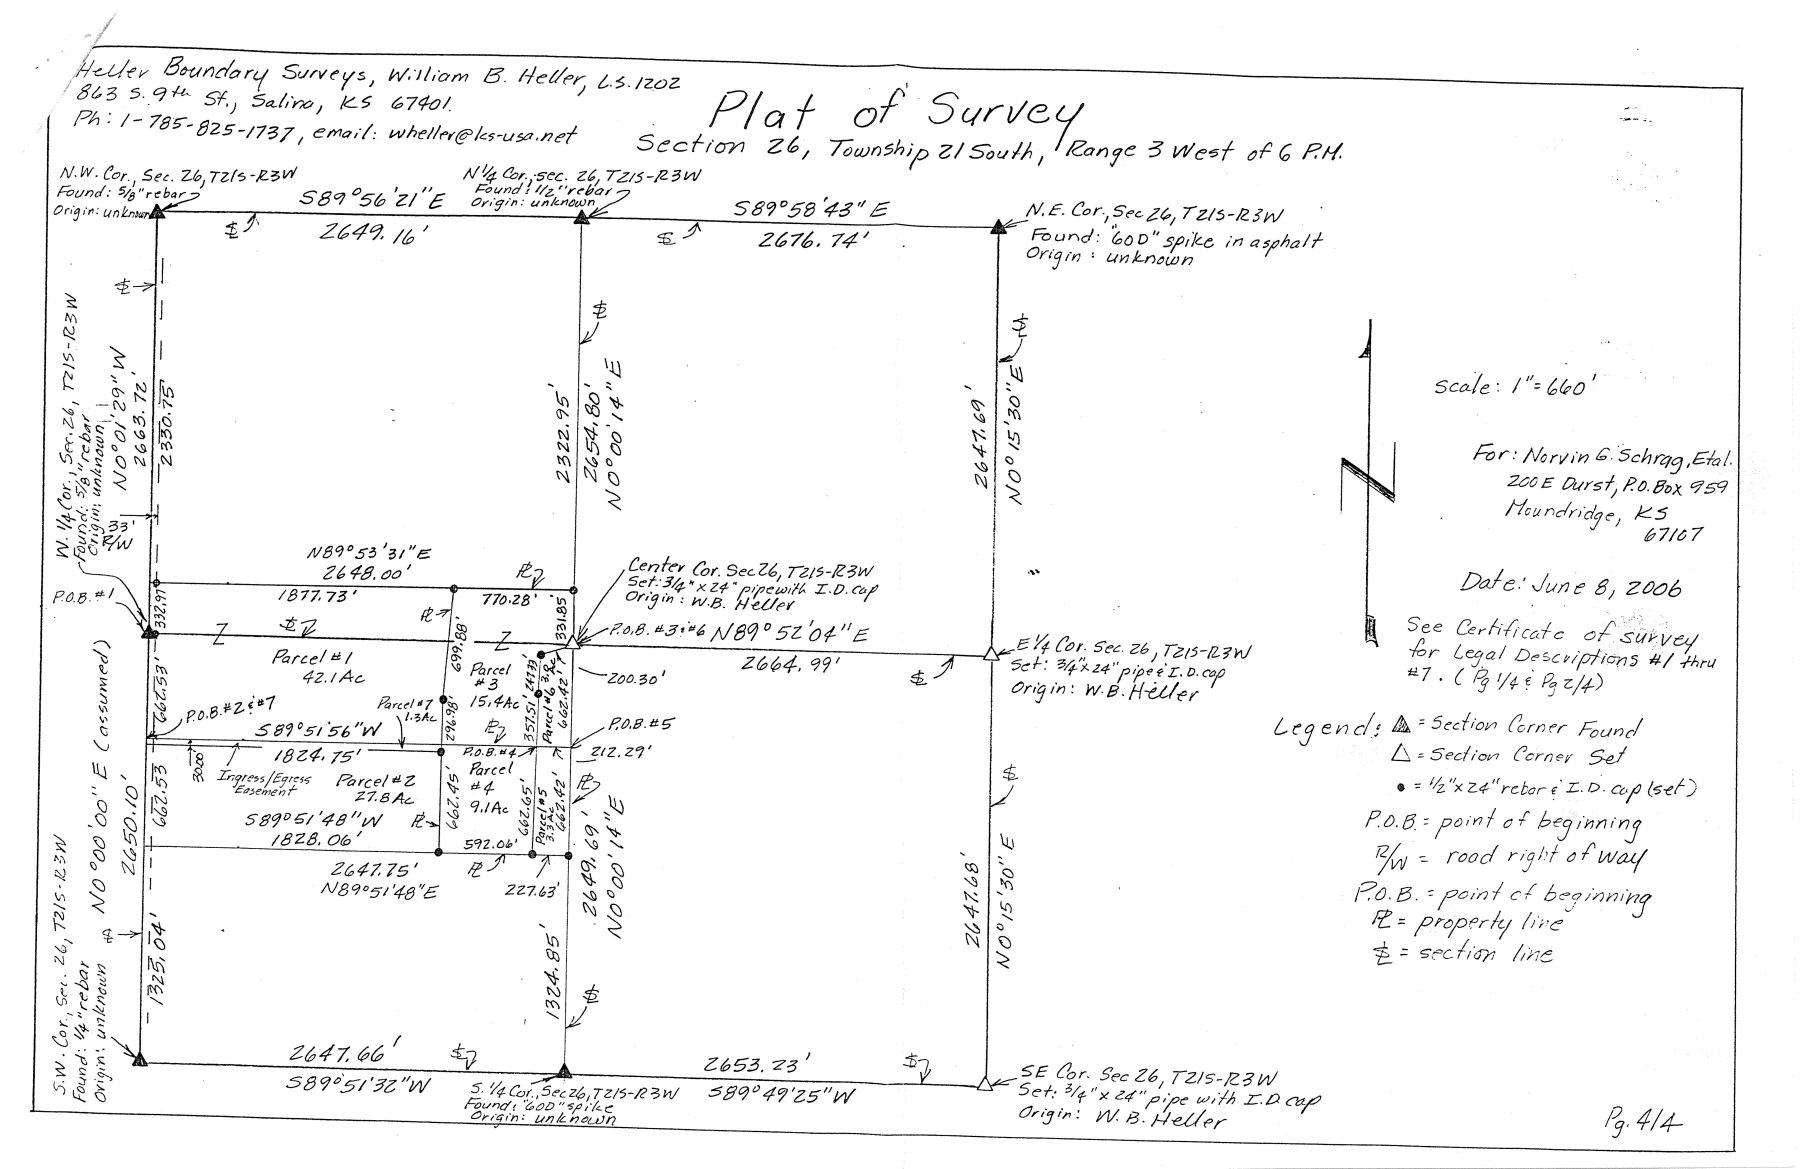 Heller Boundary Surveys, William B. Heller, L.S. 1202
863 S. 9th St., Salina, KS 67401.
Ph: 1-785-825-1737, email: wheller@ks-usa.net
Plat of Survey
Section 26, Township 21 South, Range 3 West of 6 P.M.
N.W. Cor., Sec. 26, T21S-R3W
Found: 5/8" rebar
Origin: unknown
S89°56'21"E
2649.16'
N 1/4 Cor., sec. 26, T21S-R3W
Found: 1/2" rebar
Origin: unknown
S89°58'43"E
2676.74'
N.E. Cor., Sec 26, T21S-R3W
Found: "60D" spike in asphalt
Origin: unknown
W. 1/4 Cor., Sec. 26, T21S-R3W
Found: 5/8" rebar
Origin: unknown
N0°01'29"W
2663.72'
2330.75'
33'
R/W
2322.95'
2654.80'
N0°00'14"E
2647.69'
N0°15'30"E
scale: 1"=660'
For: Norvin G. Schrag, Etal.
200 E Durst, P.O. Box 959
Moundridge, KS
67107
Date: June 8, 2006
See Certificate of survey
for Legal Descriptions #1 thru
#7. (Pg 1/4 & Pg 2/4)
N89°53'31"E
2648.00'
1877.73'
770.28'
P.O.B. #1
332.97'
331.85'
Center Cor. Sec 26, T21S-R3W
Set: 3/4" x 24" pipe with I.D. cap
Origin: W.B. Heller
P.O.B. #3 & #6
N89°52'04"E
2664.99'
E 1/4 Cor. Sec. 26, T21S-R3W
Set: 3/4" x 24" pipe & I.D. cap
Origin: W.B. Heller
Parcel #1
42.1Ac
699.88'
Parcel
#3
15.4Ac
247.33'
Parcel #6 3.8 Ac
662.42'
200.30'
662.53'
P.O.B. #2 & #7
Parcel #7
1.3Ac
296.98'
357.51'
P.O.B. #5
S89°51'56"W
1824.75'
P.O.B. #4
212.29'
30.00'
Ingress/Egress
Easement
Parcel #2
27.8Ac
Parcel
#4
9.1Ac
662.53
662.45'
662.65'
Parcel #5
3.3Ac
662.42'
S89°51'48"W
1828.06'
592.06'
2647.75'
N89°51'48"E
227.63'
N0°00'00"E (assumed)
2650.10'
1325.04'
2649.69'
N0°00'14"E
1324.85'
2647.68'
N0°15'30"E
Legend: ▲ = Section Corner Found
△ = Section Corner Set
• = 1/2" x 24" rebar & I.D. cap (set)
P.O.B. = point of beginning
R/W = road right of way
P.O.B. = point of beginning
PL = property line
SL = section line
S.W. Cor., Sec. 26, T21S-R3W
Found: 1/4" rebar
Origin: unknown
2647.66'
S89°51'32"W
S. 1/4 Cor., Sec 26, T21S-R3W
Found: "60D" spike
Origin: unknown
2653.23'
S89°49'25"W
SE Cor. Sec 26, T21S-R3W
Set: 3/4" x 24" pipe with I.D. cap
Origin: W.B. Heller
Pg. 4/4